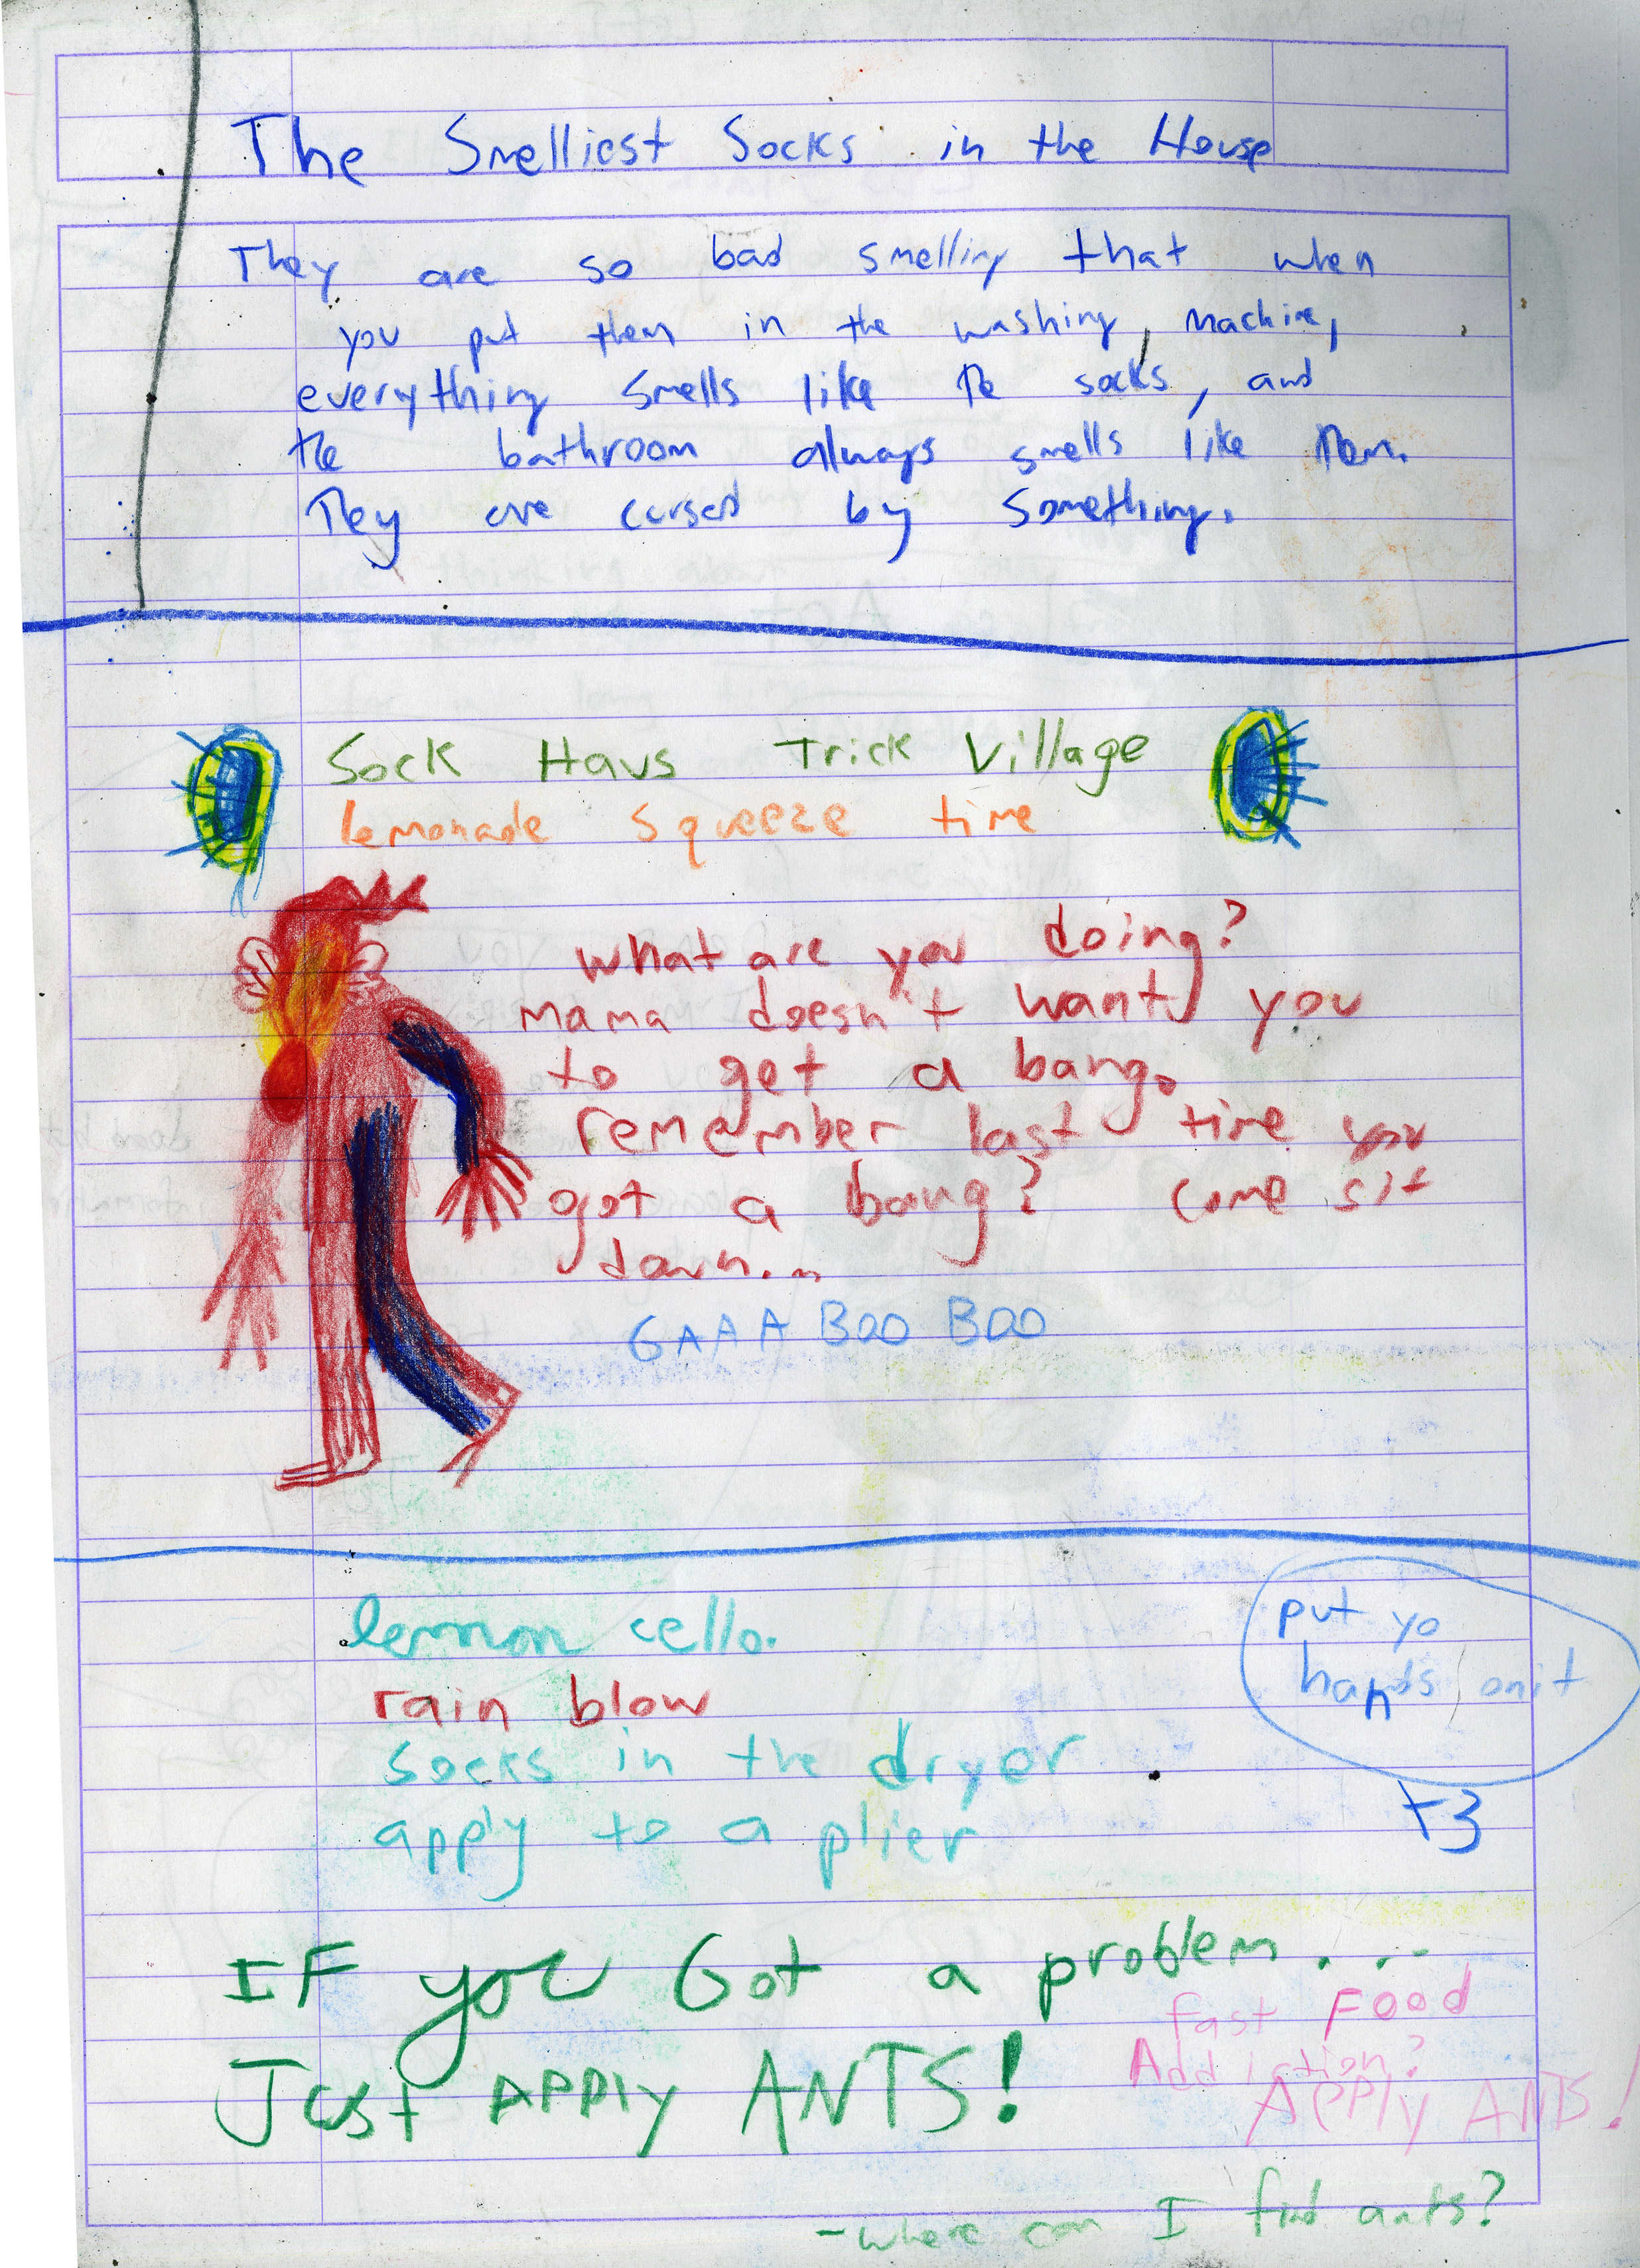 The Smelliest Socks in the House
They are so bad smelling that when
you put them in the washing, machine,
everything smells like the socks, and
the bathroom always smells like them.
They are cursed by something.
Sock Haus Trick Village
lemonade squeeze time
what are you doing?
mama doesn't want you
to get a bang.
remember last time you
got a bang? come sit
down...
GAAA BOO BOO
lemon cello.
rain blow
socks in the dryer
apply to a plier
put yo
hands on it
+3
IF you Got a problem...
Just APPly ANTS!
fast FOOD
Addiction?
APPly ANTS!
-where can I find ants?